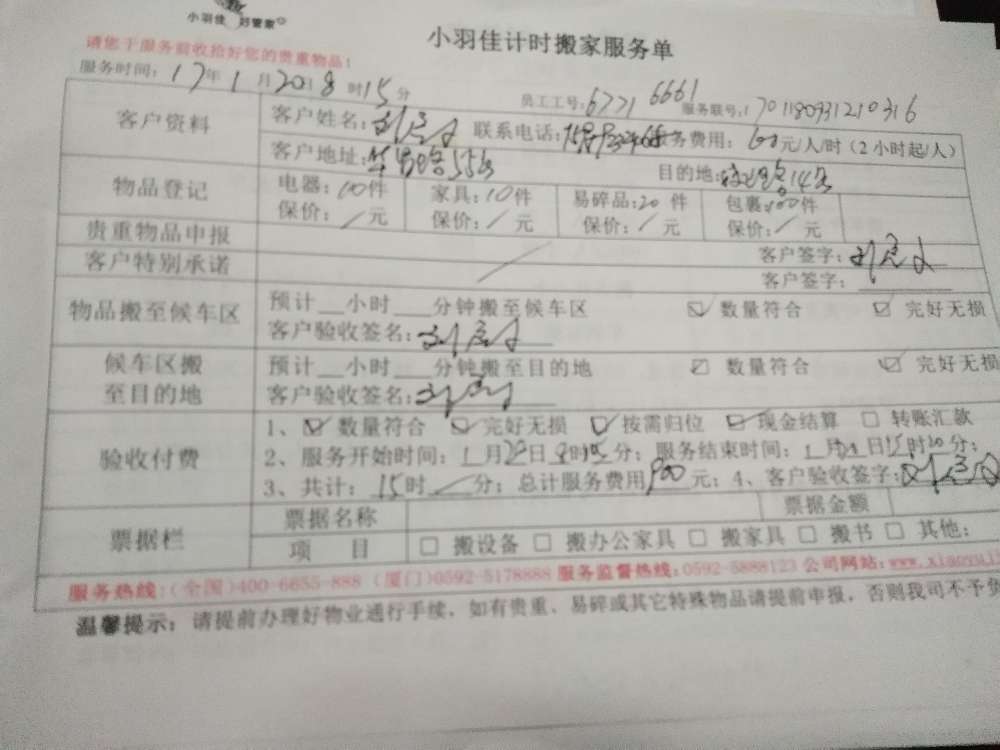 小羽佳 好管家
小羽佳计时搬家服务单
请您于服务前收拾好您的贵重物品!
服务时间: 17年1月20日8时15分 员工工号: 6771 6661 服务联号: 1701180931210316
客户资料 客户姓名: 联系电话: 服务费用: 60元/人/时(2小时起/人)
客户地址: 55号 目的地: 14号
物品登记 电器: 10件 家具: 10件 易碎品: 20件 包裹: 100件
保价: / 元 保价: / 元 保价: / 元 保价: / 元
贵重物品申报 客户签字:
客户特别承诺 客户签字:
物品搬至候车区 预计__小时___分钟搬至候车区 ☑ 数量符合 ☑ 完好无损
客户验收签名:
候车区搬至目的地 预计__小时___分钟搬至目的地 ☑ 数量符合 ☑ 完好无损
客户验收签名:
验收付费 1、☑ 数量符合 ☑ 完好无损 ☑ 按需归位 ☑ 现金结算 □ 转账汇款
2、服务开始时间: 1月20日8时15分; 服务结束时间: 1月 日15时20分;
3、共计: 15时/分; 总计服务费用900元; 4、客户验收签字:
票据栏 票据名称 票据金额
项 目 □ 搬设备 □ 搬办公家具 □ 搬家具 □ 搬书 □ 其他:
服务热线:(全国)400-6655-888 (厦门)0592-5178888 服务监督热线:0592-5888123 公司网站:www.xiaoyuj
温馨提示: 请提前办理好物业通行手续,如有贵重、易碎或其它特殊物品请提前申报,否则我司不予负